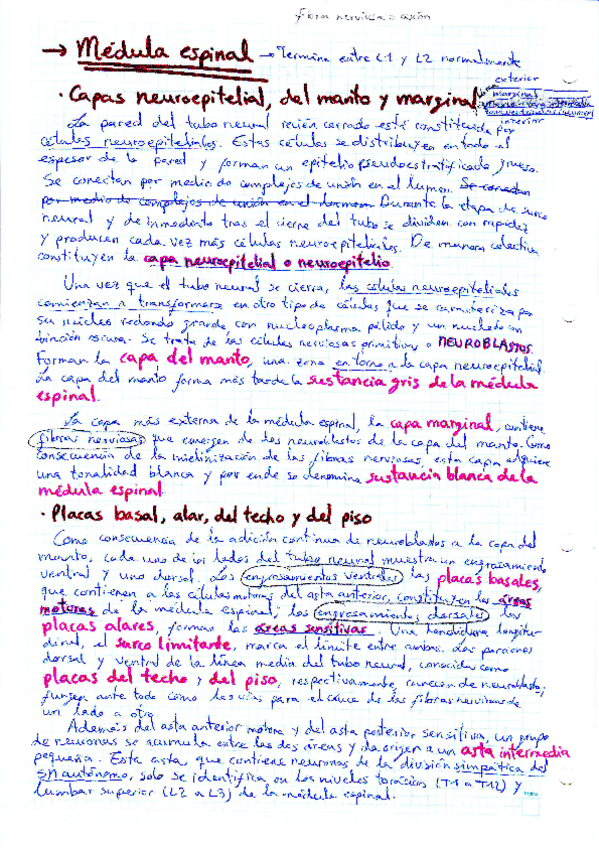 fibra nerviosa o axón
→ Médula espinal → Termina entre L1 y L2 normalmente
exterior
· Capas neuroepitelial, del manto y marginal
marginal
interior
La pared del tubo neural recién cerrado está constituida por
células neuroepiteliales. Estas células se distribuyen en todo el
espesor de la pared y forman un epitelio pseudoestratificado grueso.
Se conectan por medio de complejos de unión en el lumen. Se conectan
por medio de complejos de unión en el lumen. Durante la etapa de surco
neural y de inmediato tras el cierre del tubo se dividen con rapidez
y producen cada vez más células neuroepiteliales. De manera colectiva
constituyen la capa neuroepitelial o neuroepitelio.
Una vez que el tubo neural se cierra, las células neuroepiteliales
comienzan a transformarse en otro tipo de células que se caracteriza por
su núcleo redondo grande con nucleoplasma pálido y un nucléolo con
tinción oscura. Se trata de las células nerviosas primitivas o NEUROBLASTOS.
Forman la capa del manto, una zona en torno a la capa neuroepitelial.
La capa del manto forma más tarde la sustancia gris de la médula
espinal.
La capa más externa de la médula espinal, la capa marginal, contiene
fibras nerviosas que emergen de los neuroblastos de la capa del manto. Como
consecuencia de la mielinización de las fibras nerviosas, esta capa adquiere
una tonalidad blanca y por ende se denomina sustancia blanca de la
médula espinal
· Placas basal, alar, del techo y del piso
Como consecuencia de la adición continua de neuroblastos a la capa del
manto, cada uno de los lados del tubo neural muestra un engrosamiento
ventral y uno dorsal. Los engrosamientos ventrales, las placas basales,
que contienen a las células motoras del asta anterior, constituyen las áreas
motoras de la médula espinal; los engrosamientos dorsales, las
placas alares, forman las áreas sensitivas. Una hendidura longitu-
dinal, el surco limitante, marca el límite entre ambas. Las porciones
dorsal y ventral de la línea media del tubo neural, conocidas como
placas del techo y del piso, respectivamente, carecen de neuroblastos;
fungen ante todo como des vías para el cruce de las fibras nerviosas de
un lado a otro.
Además del asta anterior motora y del asta posterior sensitiva, un grupo
de neuronas se acumula entre las dos áreas y da origen a un asta intermedia
pequeña. Esta asta, que contiene neuronas de la división simpática del
SN autónomo, solo se identifica en los niveles torácicos (T1 a T12) y
lumbar superior (L2 a L3) de la médula espinal.